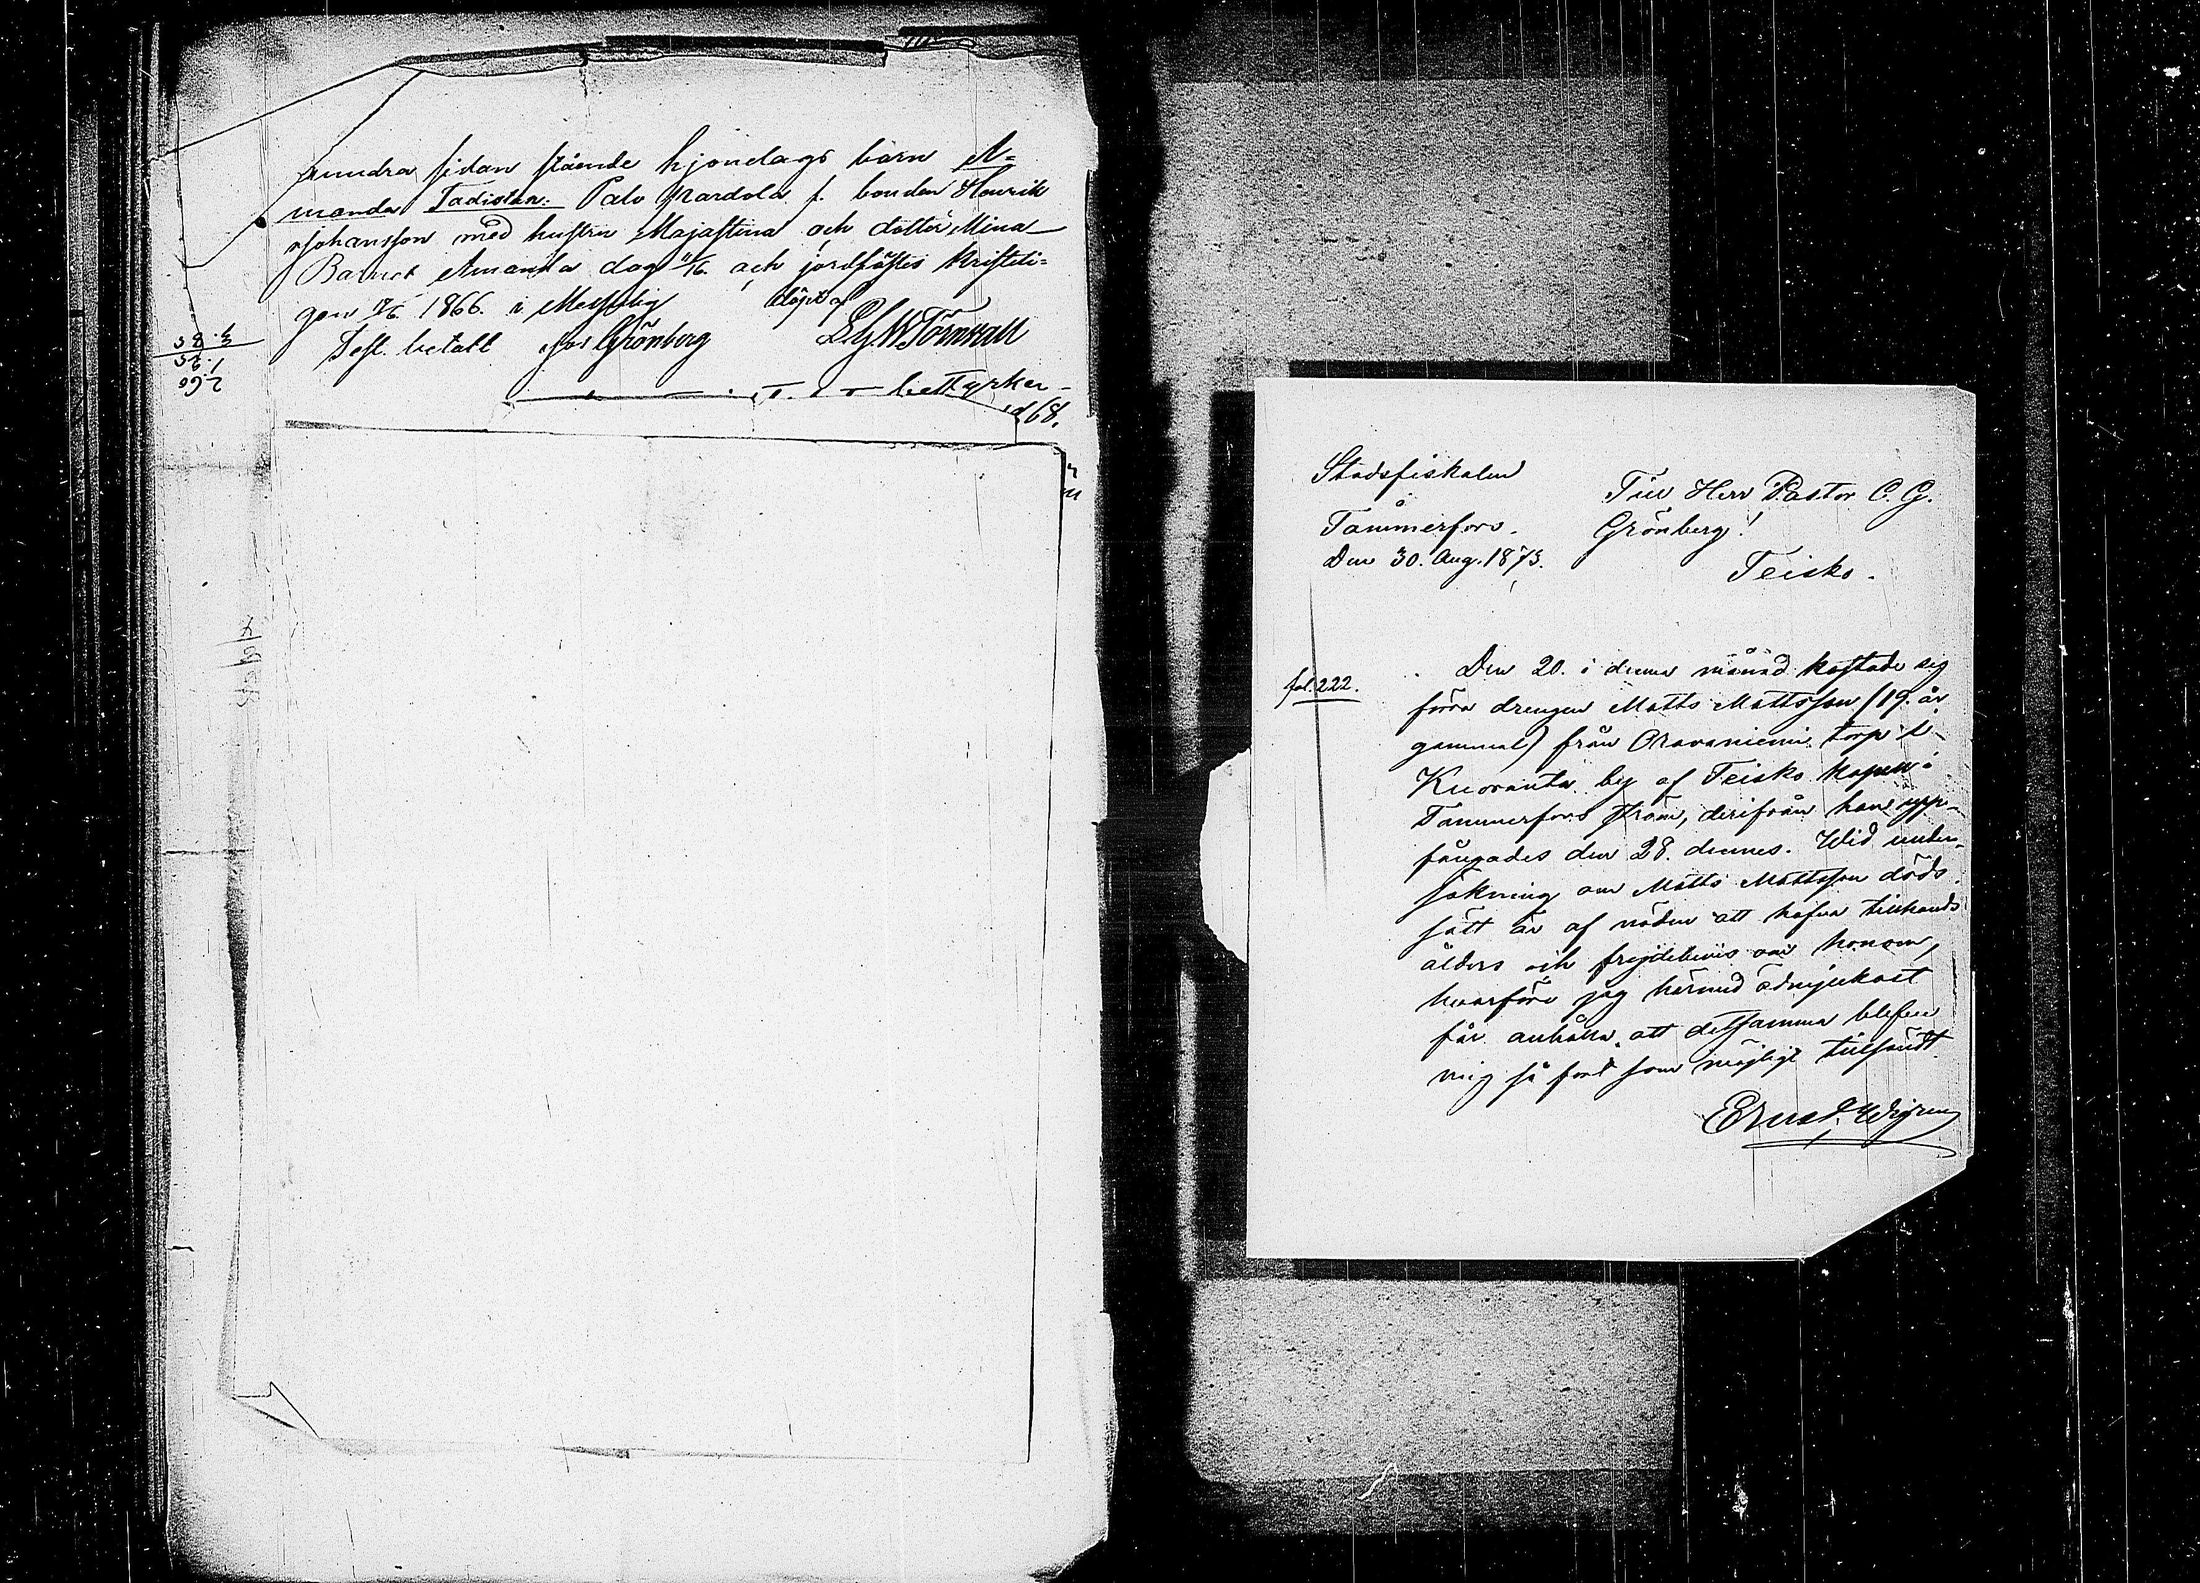 andra sidan stående hjonelags barn A-
manda Fadistar. Palo Mardola f. bonden Henrik
Johansson med hustru Majastina och dotter Mina
Barnet Amanda dog 11/6 och jordfästes kristeli-
gen 17/6 1866. i Messuby döpt af
Test. betalt Grönberg Törnvall
bettyrker
68.
3.85
1.25
2.60
Stadsfiskalen
i
Tammerfors.
Den 30. Aug. 1873.
Till Herr Pastor C. G.
Grönberg!
Teisko.
fol. 222.
Den 20. i denna månad kastade sig
förra drengen Matts Mattsson (19. år
gammal) från Oravaniemi torp i
Kuoranta by af Teisko kapell i
Tammerfors ström, derifrån han upp-
fångades den 28. dennes. Wid under-
sökning om Matts Mattsson döds
sätt är af nöden att hafva tillhands
ålders och frejdebevis om honom,
hvarföre jag härmed ödmjukast
får anhålla, att detsamma blefve
mig så fort som möjligt tillsändt.
Ernst Wigren